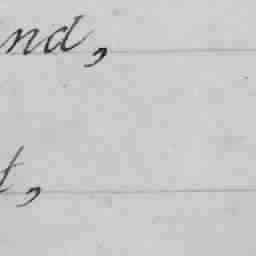 nd,
t,